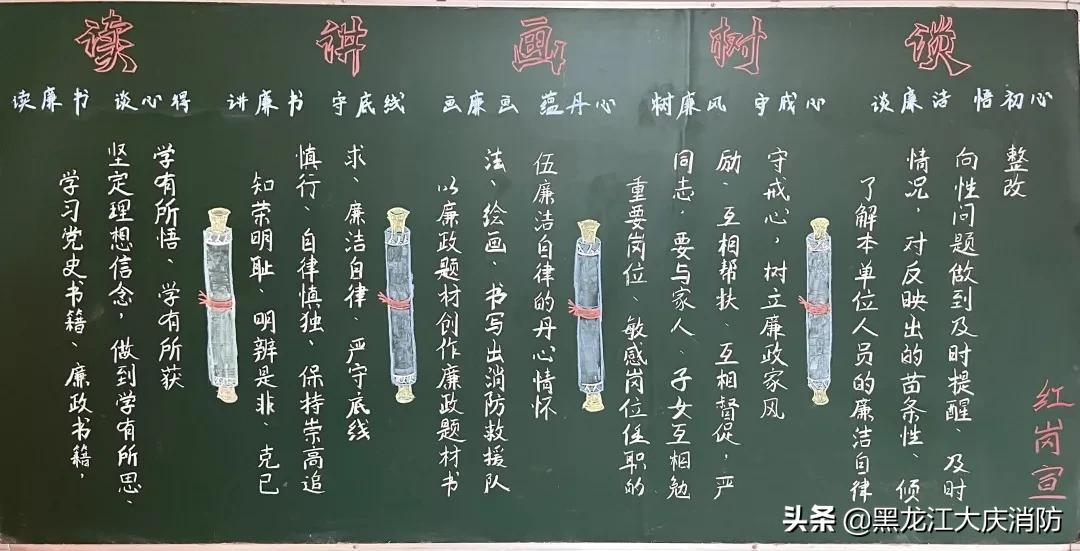 读 讲 画 树 谈
读廉书 谈心得 讲廉书 守底线 画廉画 蕴丹心 树廉风 守戒心 谈廉洁 悟初心
学习党史书籍、廉政书籍，
坚定理想信念，做到学有所思、
学有所悟、学有所获
知荣明耻、明辨是非、克己
慎行、自律慎独、保持崇高追
求、廉洁自律、严守底线
以廉政题材创作廉政题材书
法、绘画、书写出消防救援队
伍廉洁自律的丹心情怀
重要岗位、敏感岗位任职的
同志，要与家人、子女互相勉
励、互相帮扶、互相督促，严
守戒心，树立廉政家风
了解本单位人员的廉洁自律
情况，对反映出的苗条性、倾
向性问题做到及时提醒、及时
整改
红岗宣
头条 @黑龙江大庆消防